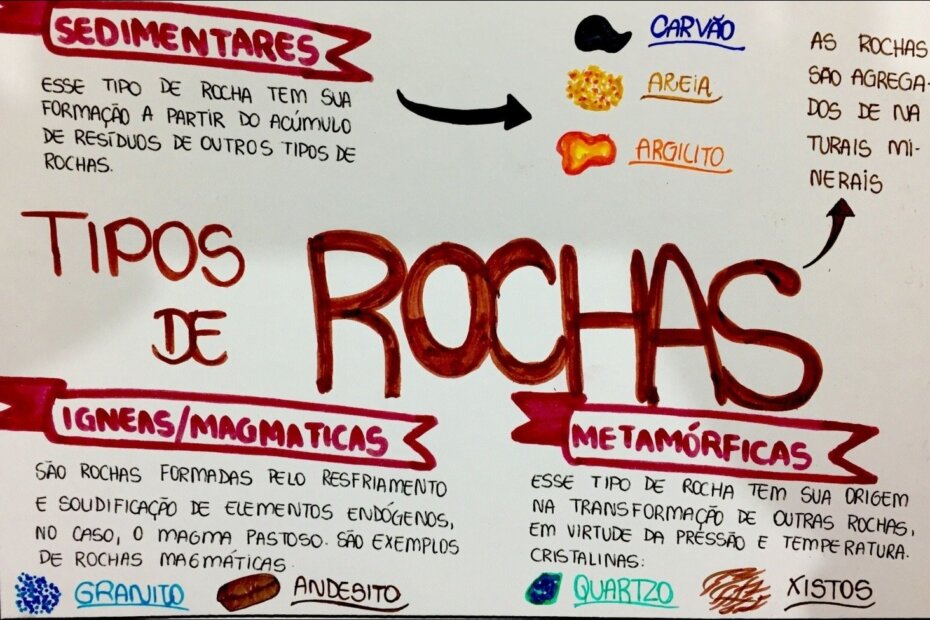 SEDIMENTARES
ESSE TIPO DE ROCHA TEM SUA
FORMAÇÃO A PARTIR DO ACÚMULO
DE RESÍDUOS DE OUTROS TIPOS DE
ROCHAS.
CARVÃO
AREIA
ARGILITO
AS ROCHAS
SÃO AGREGA-
DOS DE NA
TURAIS MI-
NERAIS
TIPOS
DE
ROCHAS
IGNEAS/MAGMATICAS
SÃO ROCHAS FORMADAS PELO RESFRIAMENTO
E SOLIDIFICAÇÃO DE ELEMENTOS ENDÓGENOS,
NO CASO, O MAGMA PASTOSO. SÃO EXEMPLOS
DE ROCHAS MAGMÁTICAS.
GRANITO
ANDESITO
METAMÓRFICAS
ESSE TIPO DE ROCHA TEM SUA ORIGEM
NA TRANSFORMAÇÃO DE OUTRAS ROCHAS,
EM VIRTUDE DA PRESSÃO E TEMPERATURA.
CRISTALINAS:
QUARTZO
XISTOS